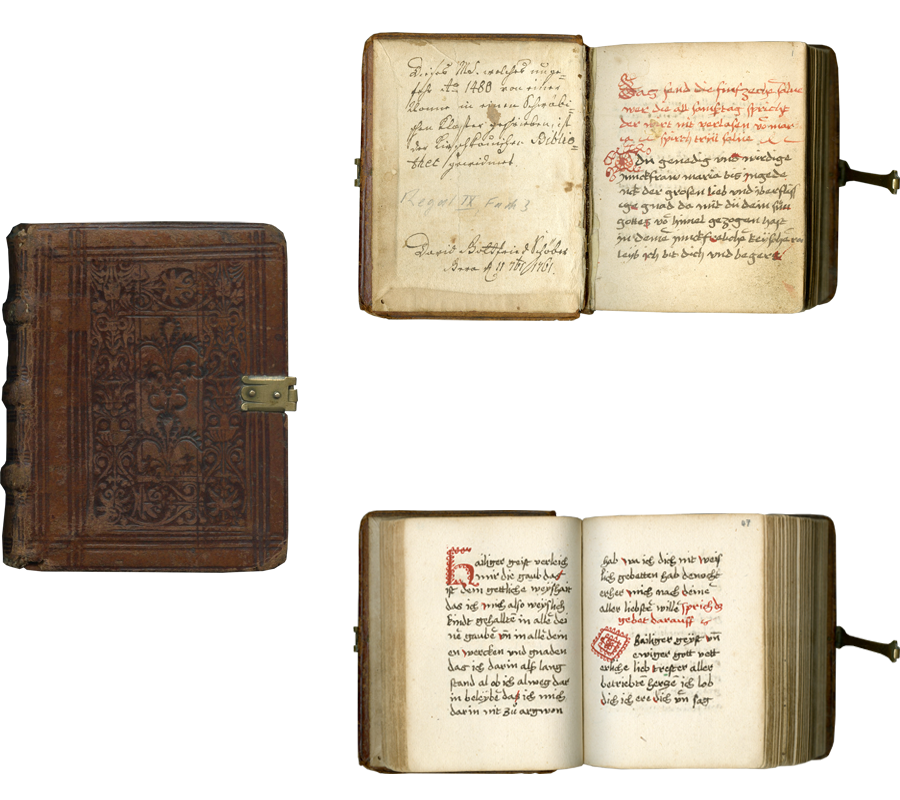 Dieses Ms. welches unge-
fehr Ao 1480 von einer
Nonne in einem Schwäbi-
schen Kloster geschrieben, ist
der Kirschkauischen Biblio-
thec gewidmet.
Regal IX Fach 3
David Gottfried Schöber
Gera d. 11
1761.
Das send die funfzechē
wer die all sonstag spricht
der wirt nit verlosen vō mar
ia
Du genedig vnd wirdige
junckfraw maria bis ingede
nck der grosen lieb vnd iberflüss
ige gnad da mit dü dein sün
gottes vō himel gezogen hast
in deine junckfrelichē
leyb ich bit dich vnd beger
Hailiger geist verleich
mir die gaub das
ist dein gettliche weyshait
das ich mich also weyslich
kindt gehalltē in allē dei
nē gaubē vn̄ in allē dein
en wercken vnd gnaden
das ich darin als lang
stand al ob ich alweg dar
in beleybē das ich mich
darin nit zu argwon
47
hab wa ich dich nit weis
lich gebetten hab denocht
erher mich nach deinē
aller liebstē willē sprich dz
gebet darauff
O hailiger geyst vn̄
ewiger gott vett
erliche lieb trester aller
betriebtē hertze ich lob
dich ich ere dich vn̄ sag